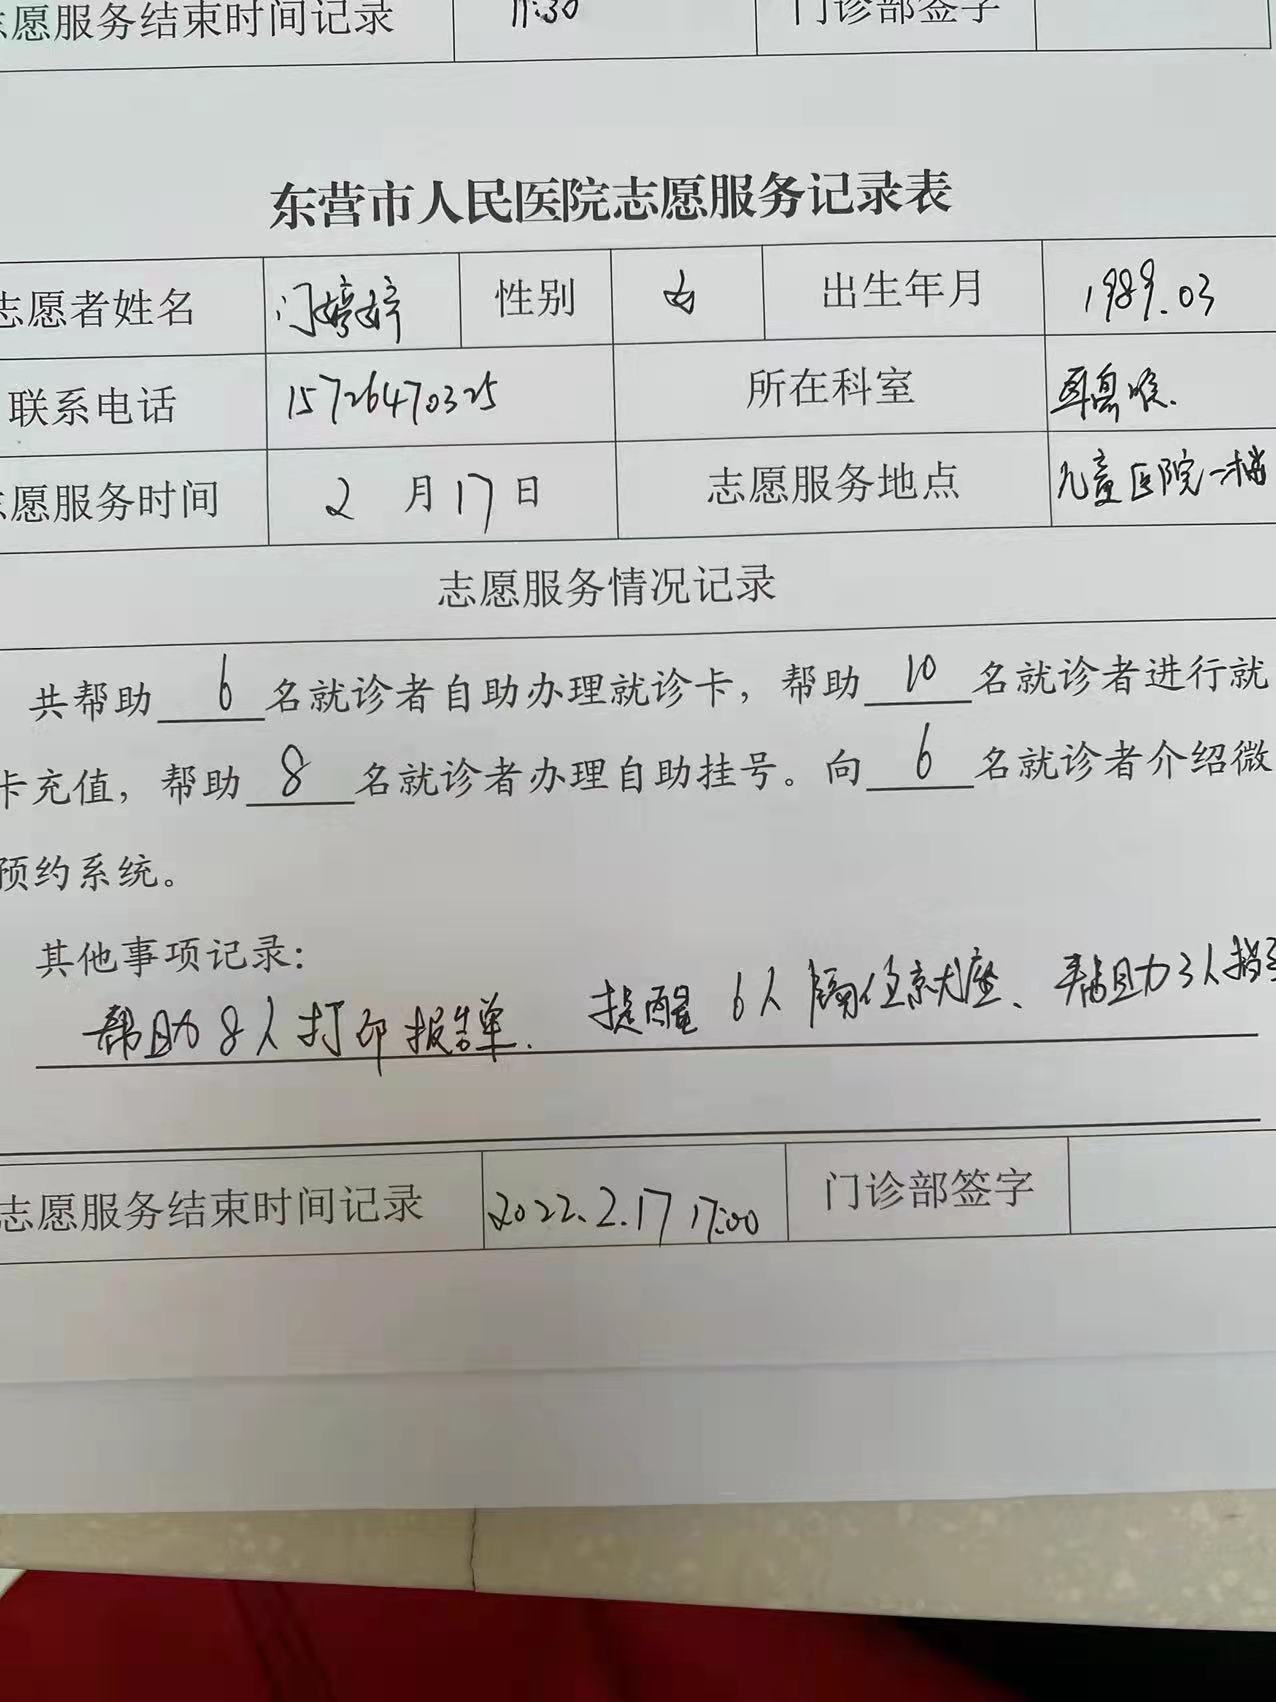 志愿服务结束时间记录 11:30 门诊部签字
东营市人民医院志愿服务记录表
志愿者姓名 门婷婷 性别 女 出生年月 1989.03
联系电话 15726470325 所在科室 耳鼻喉
志愿服务时间 2月17日 志愿服务地点 儿童医院一楼
志愿服务情况记录
共帮助 6 名就诊者自助办理就诊卡，帮助 10 名就诊者进行就
卡充值，帮助 8 名就诊者办理自助挂号。向 6 名就诊者介绍微
预约系统。
其他事项记录：
帮助8人打印报告单. 提醒6人隔位就座、帮助3人
志愿服务结束时间记录 2022.2.17 17:00 门诊部签字